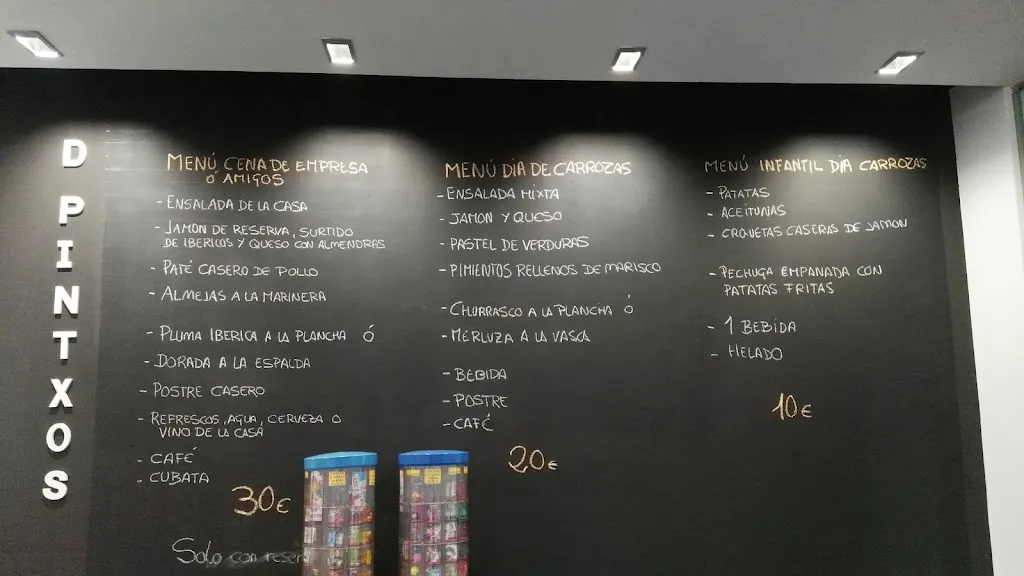 D PINTXOS
MENÚ CENA DE EMPRESA
Ó AMIGOS
- ENSALADA DE LA CASA
- JAMÓN DE RESERVA, SURTIDO
DE IBERICOS Y QUESO CON ALMENDRAS
- PATÉ CASERO DE POLLO
- ALMEJAS A LA MARINERA
- PLUMA IBERICA A LA PLANCHA Ó
- DORADA A LA ESPALDA
- POSTRE CASERO
- REFRESCOS, AGUA, CERVEZA O
VINO DE LA CASA
- CAFÉ
- CUBATA
30€
Solo con
MENÚ DÍA DE CARROZAS
- ENSALADA MIXTA
- JAMON Y QUESO
- PASTEL DE VERDURAS
- PIMIENTOS RELLENOS DE MARISCO
- CHURRASCO A LA PLANCHA Ó
- MERLUZA A LA VASCA
- BEBIDA
- POSTRE
- CAFÉ
20€
MENÚ INFANTIL DÍA CARROZAS
- PATATAS
- ACEITUNAS
- CROQUETAS CASERAS DE JAMON
- PECHUGA EMPANADA CON
PATATAS FRITAS
- 1 BEBIDA
- HELADO
10€